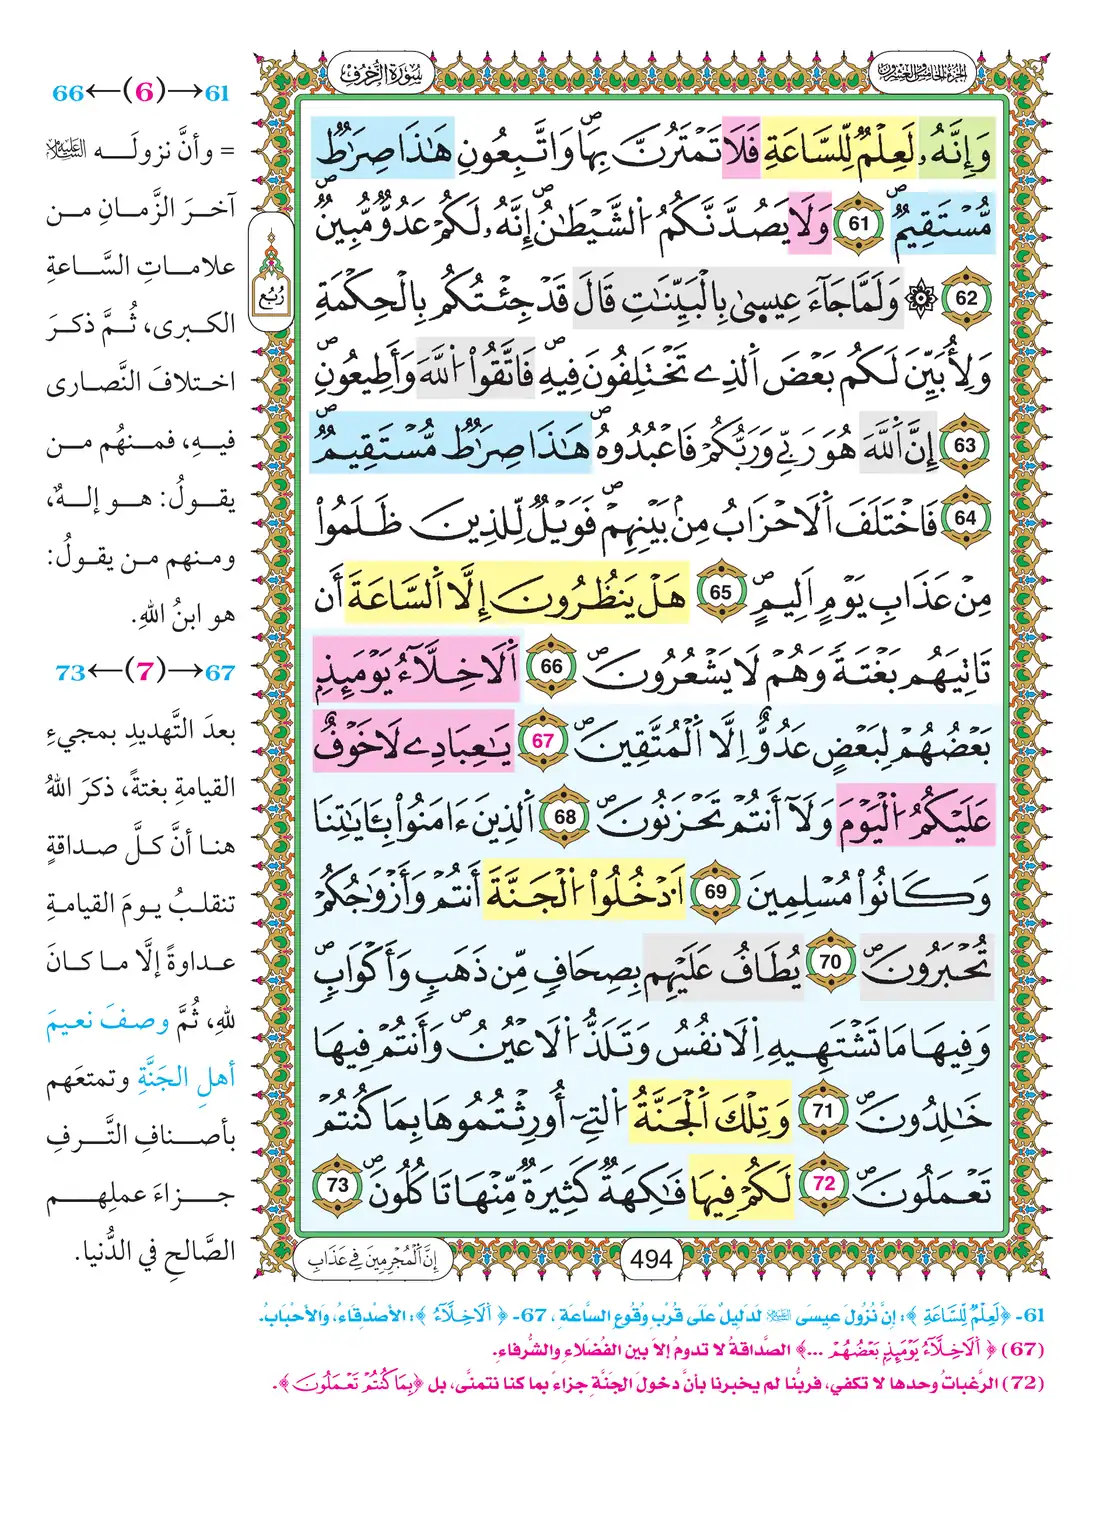 سُورَةُ الزُّخْرُفِ
الجُزْءُ الخَامِسُ وَالعِشْرُونَ
وَإِنَّهُۥ لَعِلْمٞ لِّلسَّاعَةِ فَلَا تَمْتَرُنَّ بِهَاۖ وَاتَّبِعُونِۖ هَٰذَا صِرَٰطٞ
مُّسْتَقِيمٞۖ 61 وَلَا يَصُدَّنَّكُمُ اُ۬لشَّيْطَٰنُۖ إِنَّهُۥ لَكُمْ عَدُوّٞ مُّبِينٞۖ
62 ۞ وَلَمَّا جَآءَ عِيسَىٰ بِالْبَيِّنَٰتِ قَالَ قَدْ جِئْتُكُم بِالْحِكْمَةِ
وَلِأُبَيِّنَ لَكُم بَعْضَ اَ۬لذِے تَخْتَلِفُونَ فِيهِۖ فَاتَّقُواْ اُ۬للَّهَ وَأَطِيعُونِۖ
63 إِنَّ اَ۬للَّهَ هُوَ رَبِّے وَرَبُّكُمْ فَاعْبُدُوهُۖ هَٰذَا صِرَٰطٞ مُّسْتَقِيمٞۖ
64 فَاخْتَلَفَ اَ۬لَاحْزَابُ مِنۢ بَيْنِهِمْۖ فَوَيْلٞ لِّلذِينَ ظَلَمُواْ
مِنْ عَذَابِ يَوْمٍ اَلِيمٍۖ 65 هَلْ يَنظُرُونَ إِلَّا اَ۬لسَّاعَةَ أَن
تَاتِيَهُم بَغْتَةٗ وَهُمْ لَا يَشْعُرُونَۖ 66 اَ۬لَاخِلَّآءُ يَوْمَئِذِۢ
بَعْضُهُمْ لِبَعْضٍ عَدُوٌّ اِلَّا اَ۬لْمُتَّقِينَۖ 67 يَٰعِبَادِے لَا خَوْفٌ
عَلَيْكُمُ اُ۬لْيَوْمَ وَلَآ أَنتُمْ تَحْزَنُونَۖ 68 اَ۬لذِينَ ءَامَنُواْ بِـَٔايَٰتِنَا
وَكَانُواْ مُسْلِمِينَ 69 اَ۟دْخُلُواْ اُ۬لْجَنَّةَ أَنتُمْ وَأَزْوَٰجُكُمْ
تُحْبَرُونَۖ 70 يُطَافُ عَلَيْهِم بِصِحَافٖ مِّن ذَهَبٖ وَأَكْوَابٖۖ
وَفِيهَا مَا تَشْتَهِيهِ اِ۬لَانفُسُ وَتَلَذُّ اُ۬لَاعْيُنُۖ وَأَنتُمْ فِيهَا
خَٰلِدُونَۖ 71 وَتِلْكَ اَ۬لْجَنَّةُ اُ۬لتِےٓ أُورِثْتُمُوهَا بِمَا كُنتُمْ
تَعْمَلُونَۖ 72 لَكُمْ فِيهَا فَٰكِهَةٞ كَثِيرَةٞ مِّنْهَا تَاكُلُونَۖ 73
إِنَّ اَ۬لْمُجْرِمِينَ فِے عَذَابِ
494
رُبُع
61→(6)←66
= وأنَّ نزولَـه عليه السلام
آخـرَ الزَّمـانِ مـن
علامـاتِ السَّـاعةِ
الكـبرى، ثُـمَّ ذكـرَ
اختلافَ النَّصارى
فيـهِ، فمـنهُم مـن
يقـولُ: هـو إلـهٌ،
ومنهم مـن يقـولُ:
هو ابنُ اللهِ.
67→(7)←73
بعدَ التَّهديدِ بمجيءِ
القيامةِ بغتةً، ذكرَ اللهُ
هنـا أنَّ كـلَّ صـداقةٍ
تنقلـبُ يـومَ القيامـةِ
عـداوةً إلَّا مـا كـانَ
للهِ، ثُمَّ وصـفَ نعـيمَ
أهلِ الجَنَّةِ وتمتعَهم
بأصـنافِ التَّـرفِ
جـزاءَ عملِهـم
الصَّالحِ في الدُّنيا.
61- ﴿لَعِلْمٞ لِّلسَّاعَةِ﴾: إنَّ نُزُولَ عِيسَى عليه السلام لَدَلِيلٌ عَلَى قُرْبِ وُقُوعِ السَّاعَةِ، 67- ﴿اَ۬لَاخِلَّآءُ﴾: الأَصْدِقَاءُ، وَالأَحْبَابُ.
(67) ﴿اَ۬لَاخِلَّآءُ يَوْمَئِذِۢ بَعْضُهُمْ ...﴾ الصَّداقةُ لا تدومُ إلا بين الفُضَلاءِ والشُّرفاءِ.
(72) الرَّغباتُ وحدها لا تكفي، فربُّنا لم يخبرنا بأنَّ دخولَ الجَنَّةِ جزاءً بما كنا نتمنَّى، بل ﴿بِمَا كُنتُمْ تَعْمَلُونَ﴾.